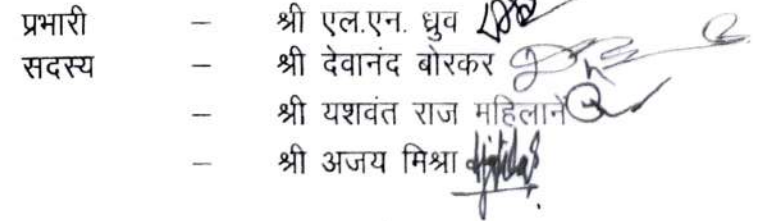 प्रभारी – श्री एल.एन. ध्रुव
सदस्य – श्री देवानंद बोरकर
– श्री यशवंत राज महिलाने
– श्री अजय मिश्रा